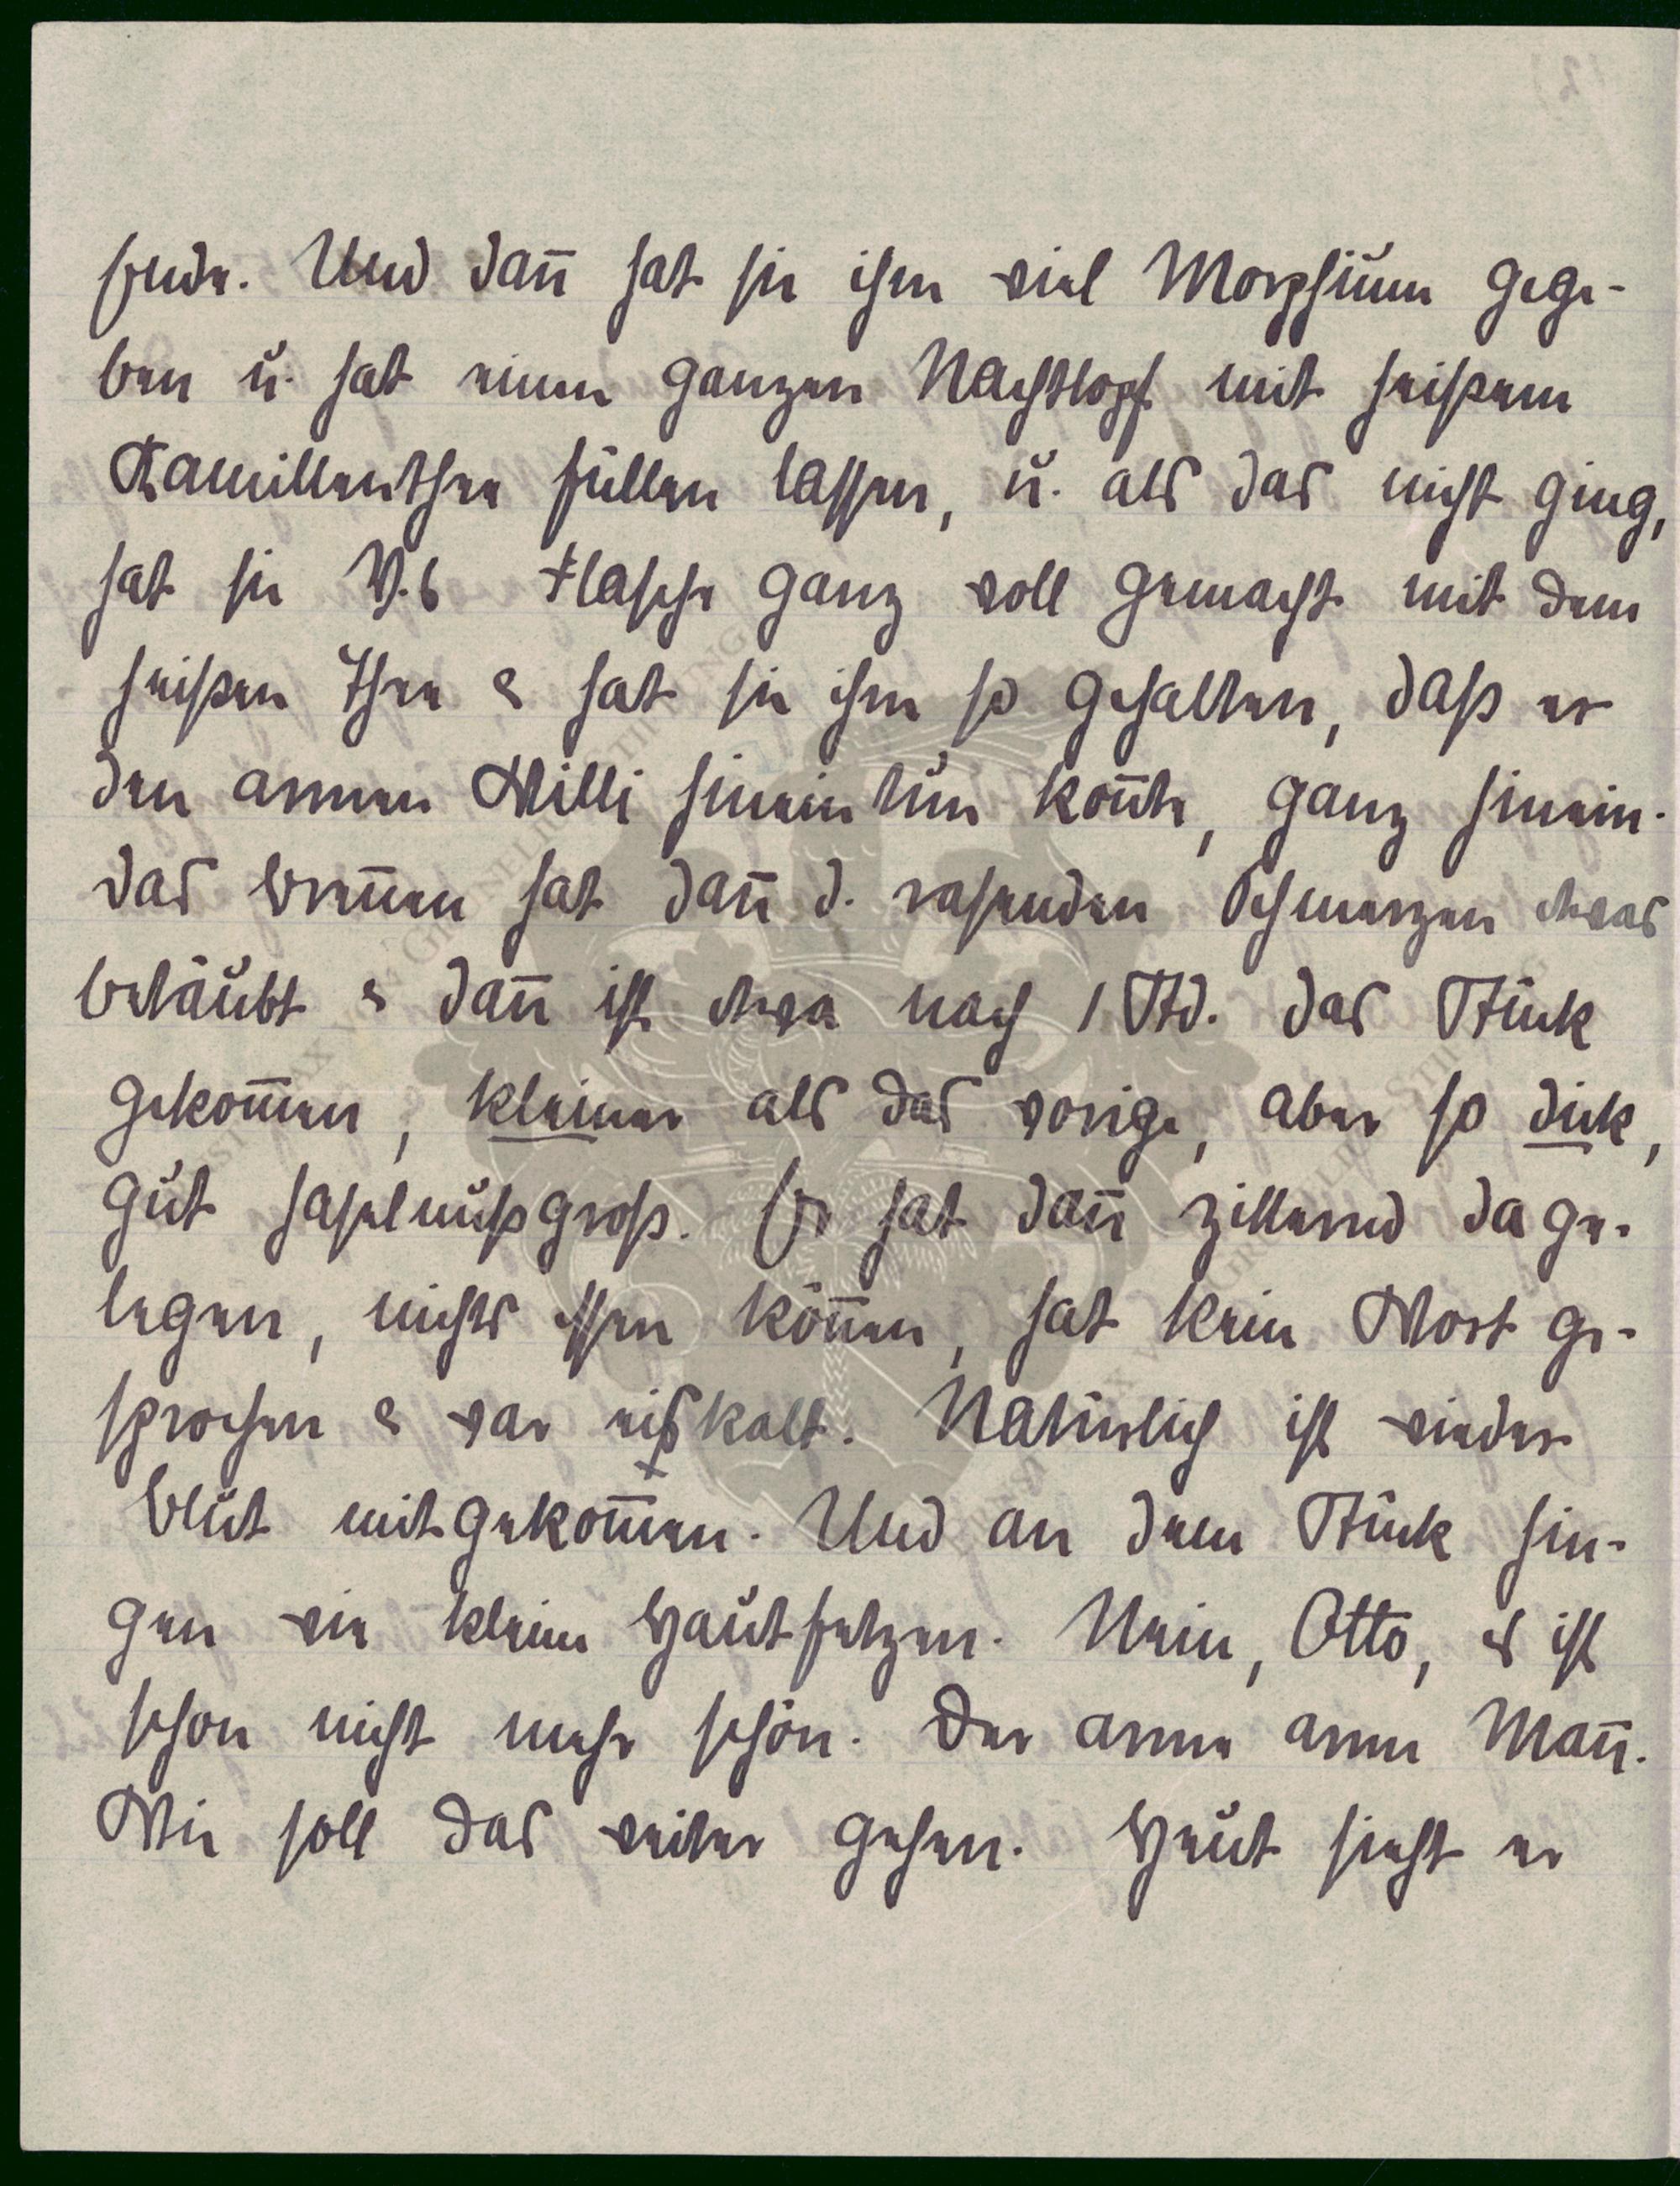 Ende. Und dan̄ hat sie ihm viel Morphium gege-
ben u. hat einen ganzen Nachttopf mit heißem
Kamillenthee füllen lassen, u. als das nicht ging,
hat sie Flasche ganz voll gemacht mit dem
heißen Thee & hat sie ihm so gehalten, daß er
den armen Willi hinein tun kon̄te, ganz hinein.
das bren̄en hat dan̄ d. rasenden Schmerzen etwas
betäubt & dan̄ ist etwa nach 1 Std. das Stück
gekom̄en, kleiner als das vorige, aber so dick,
gut haselnußgroß. Er hat dan̄ zitternd da ge-
legen, nichts essen kön̄en, hat kein Wort ge-
sprochen & war eiskalt. Natürlich ist wieder
Blut mitgekom̄en. Und an dem Stück hin-
gen wie kleine Hautfetzen. Nein, Otto, es ist
schon nicht mehr schön. Der arme arme Man̄.
Wie soll das weiter gehen. Heut sieht er